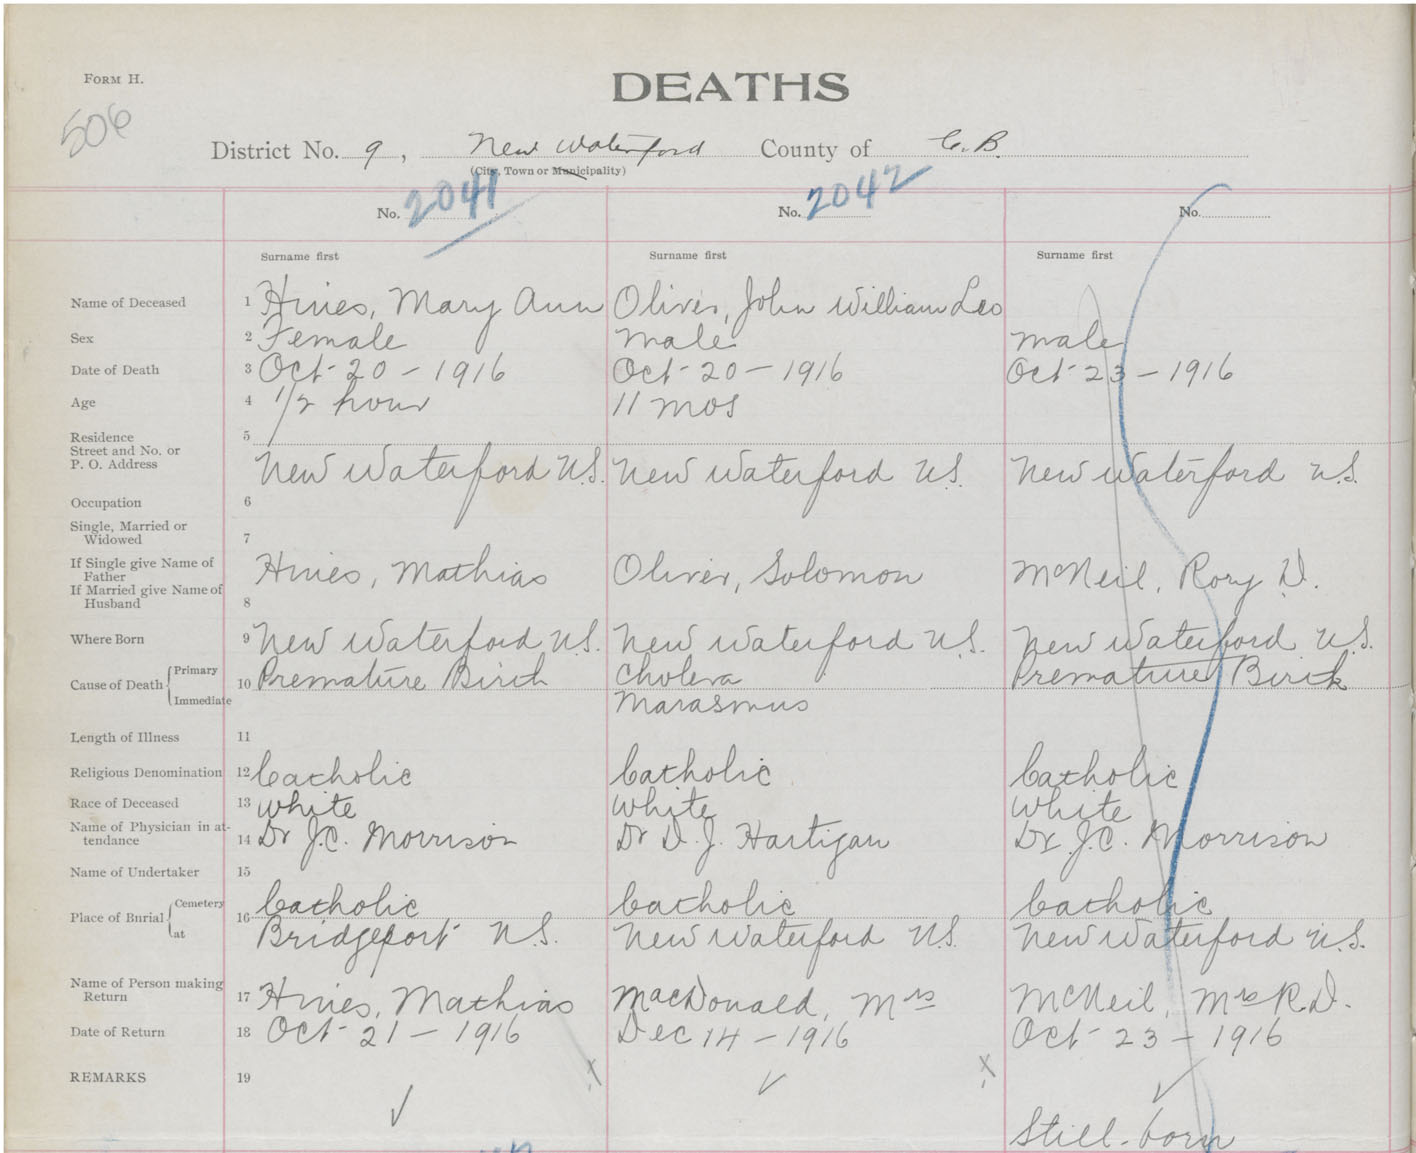 FORM H.
DEATHS
506
District No. 9, New Waterford County of C.B.
(City, Town or Municipality)
No. 2041 No. 2042 No.
Surname first Surname first Surname first
Name of Deceased 1 Hines, Mary Ann Oliver, John William Leo
Sex 2 Female male male
Date of Death 3 Oct-20-1916 Oct-20-1916 Oct-23-1916
Age 4 1/2 hour 11 mos
Residence 5
Street and No. or
P. O. Address New Waterford N.S. New Waterford N.S. New Waterford N.S.
Occupation 6
Single, Married or
Widowed 7
If Single give Name of
Father Hines, Mathias Oliver, Solomon McNeil, Rory D.
If Married give Name of
Husband 8
Where Born 9 New Waterford N.S. New Waterford N.S. New Waterford N.S.
Cause of Death { Primary 10 Premature Birth Cholera Premature Birth
Immediate Marasmus
Length of Illness 11
Religious Denomination 12 Catholic Catholic Catholic
Race of Deceased 13 white white white
Name of Physician in at-
tendance 14 Dr J.C. Morrison Dr D. J. Hartigan Dr. J.C. Morrison
Name of Undertaker 15
Place of Burial { Cemetery 16 Catholic Catholic Catholic
at Bridgeport N.S. New Waterford N.S. New Waterford N.S.
Name of Person making
Return 17 Hines, Mathias MacDonald, Mrs McNeil, Mrs R.D.
Date of Return 18 Oct-21-1916 Dec 14-1916 Oct-23-1916
REMARKS 19
Still-born